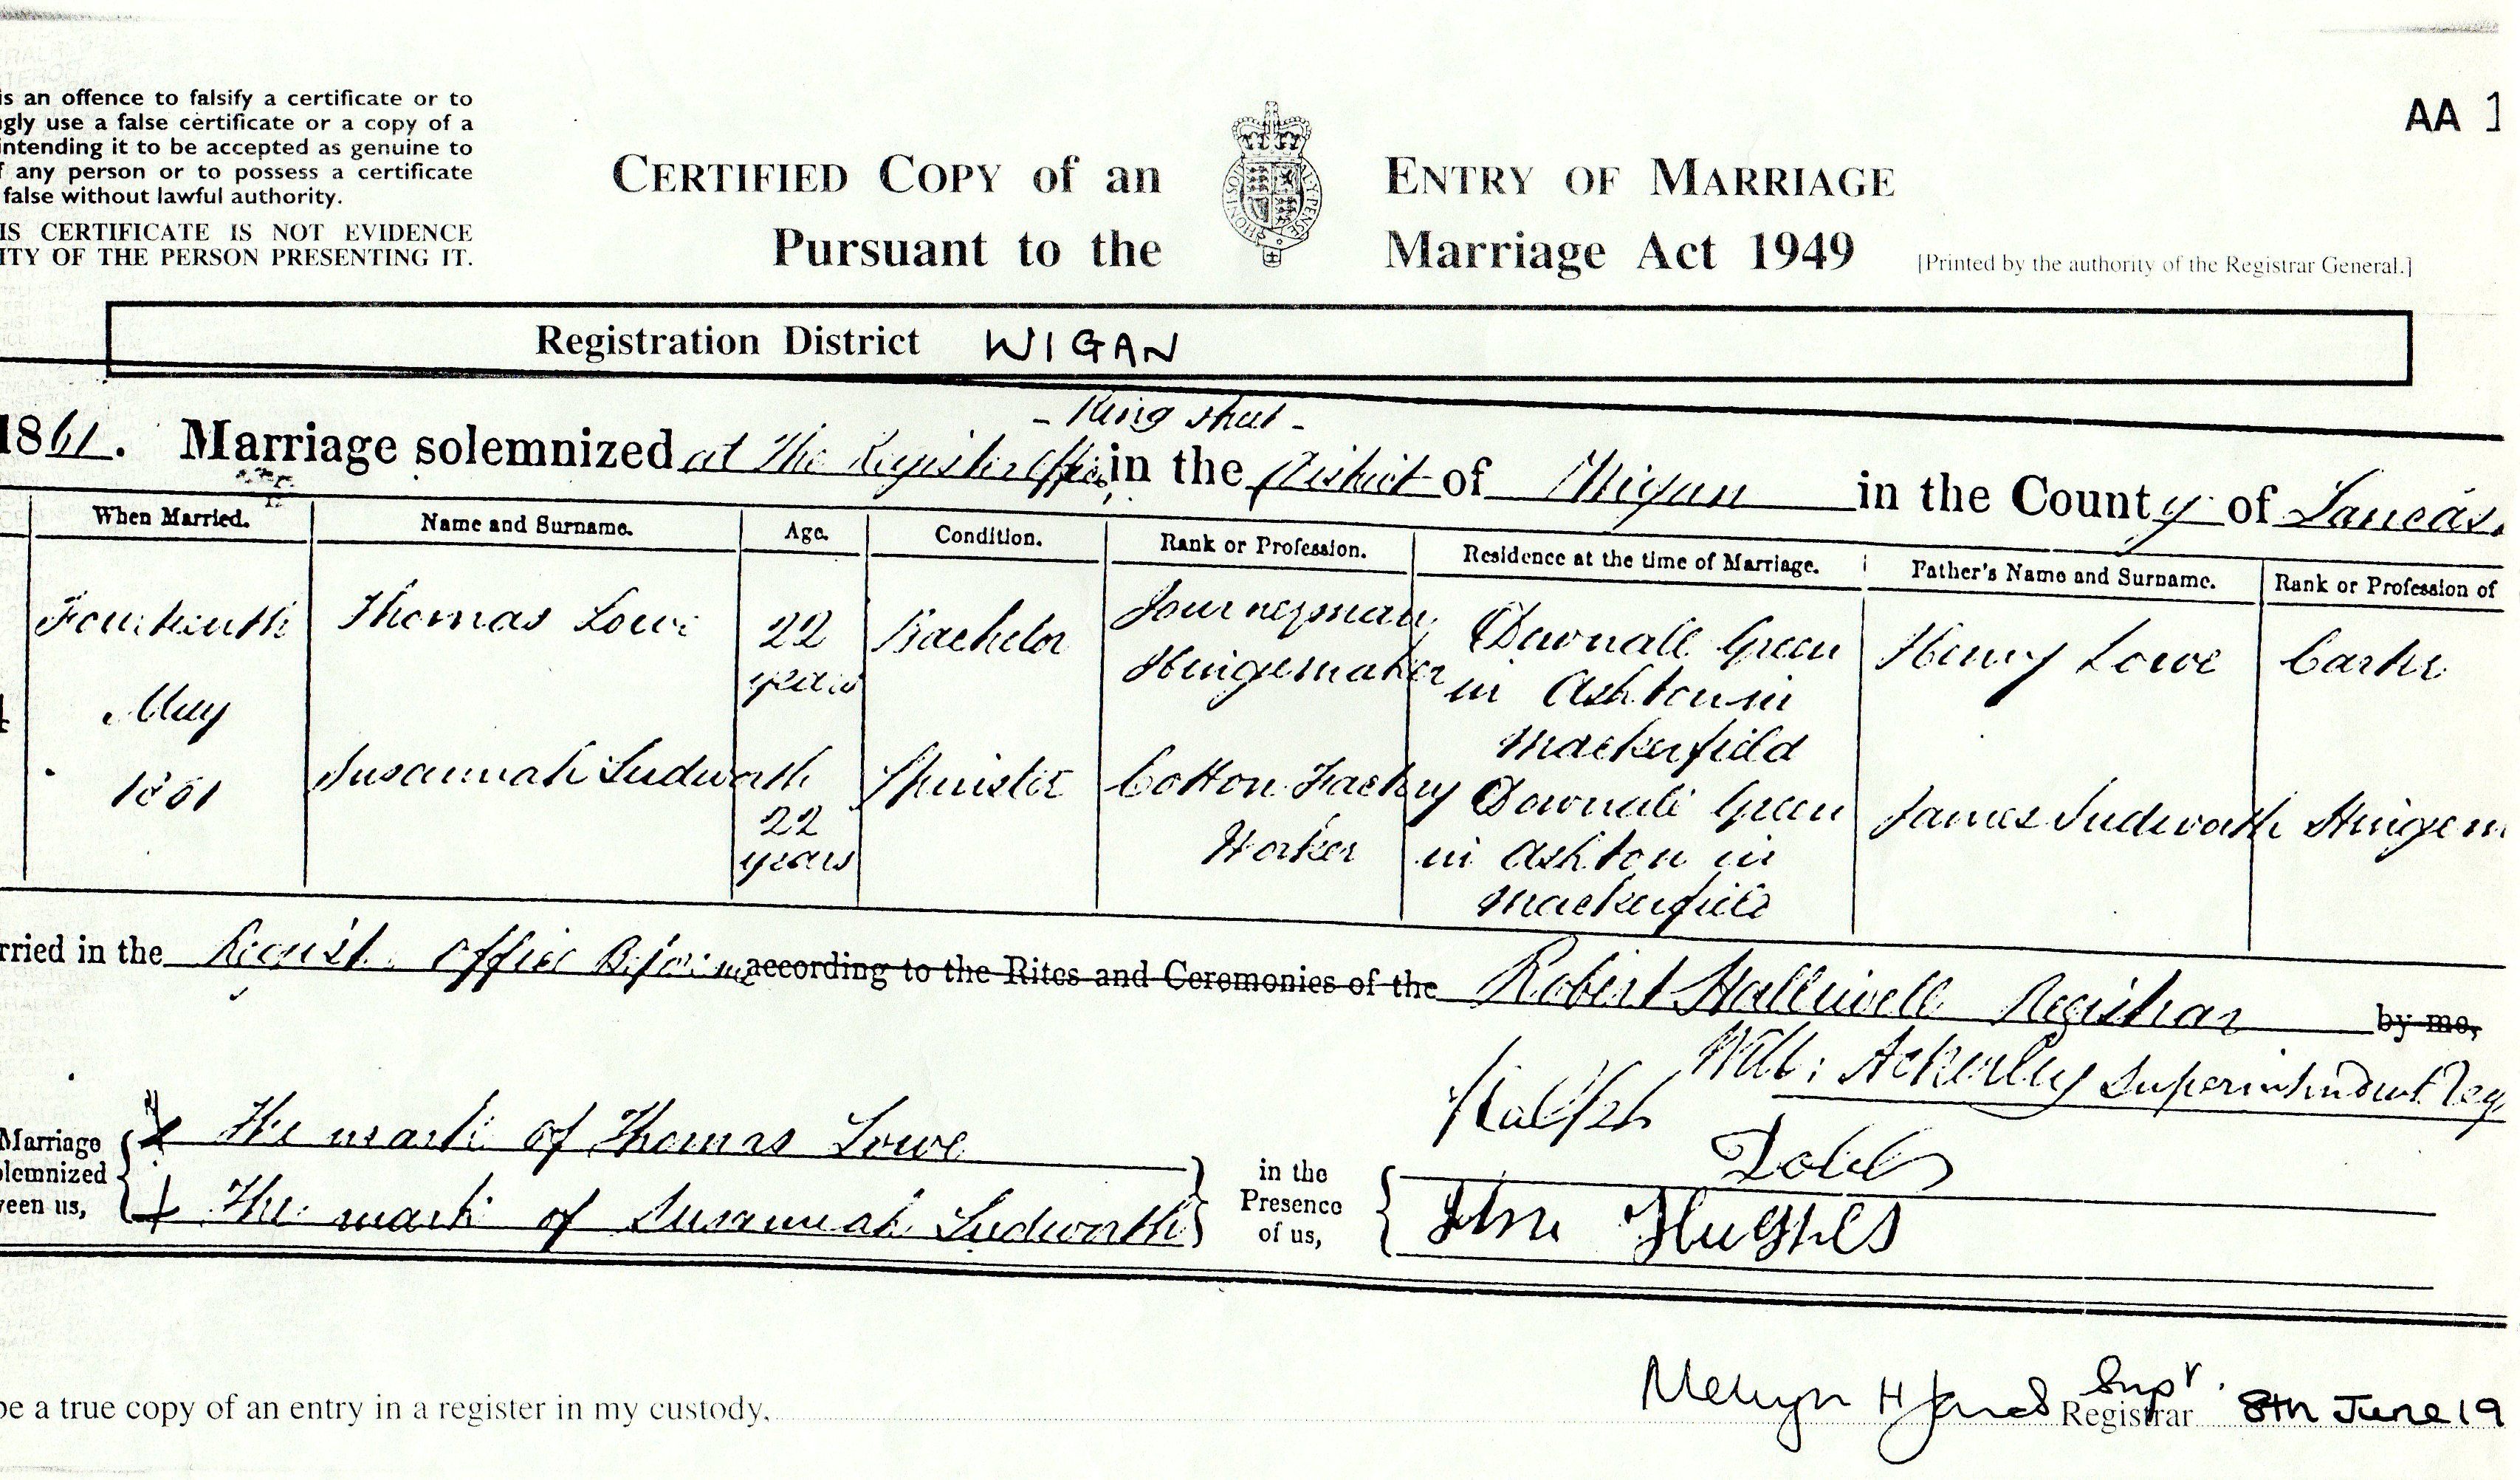 is an offence to falsify a certificate or to
gly use a false certificate or a copy of a
intending it to be accepted as genuine to
f any person or to possess a certificate
false without lawful authority.
IS CERTIFICATE IS NOT EVIDENCE
ITY OF THE PERSON PRESENTING IT.
AA 1
CERTIFIED COPY of an ENTRY OF MARRIAGE
Pursuant to the Marriage Act 1949
[Printed by the authority of the Registrar General.]
Registration District WIGAN
- King Street -
1861. Marriage solemnized at The Register Office in the District of Wigan in the County of Lancas.
When Married. Name and Surname. Age. Condition. Rank or Profession. Residence at the time of Marriage. Father's Name and Surname. Rank or Profession of
Fourteenth May 1861 Thomas Lowe 22 years Bachelor Journeyman Hingemaker Downall Green in Ashton in Mackerfield Henry Lowe Carter
Susannah Sudworth 22 years Spinster Cotton Factory Worker Downall Green in Ashton in Mackerfield James Sudworth Hingem
rried in the Register Office Before me according to the Rites and Ceremonies of the Robert Halliwell Registrar by me,
Will: Ackerley Superintendent Reg
Marriage
olemnized
ween us,
The mark of Thomas Lowe
The mark of Susannah Sudworth
in the
Presence
of us,
Ralph
John Hughes
be a true copy of an entry in a register in my custody,
Supr. Registrar 8th June 19